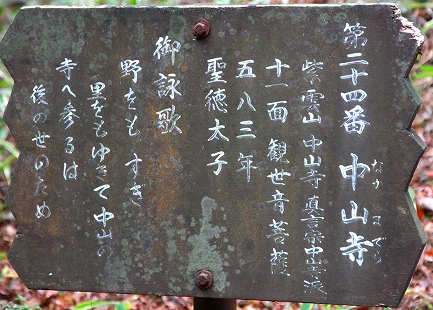 第二十四番 中山寺
なかやまでら
紫雲山 中山寺 真言宗中山寺派
十一面観世音菩薩
五八三年
聖徳太子
御詠歌
野をもすぎ
里をもゆきて中山の
寺へ参るは
後の世のため